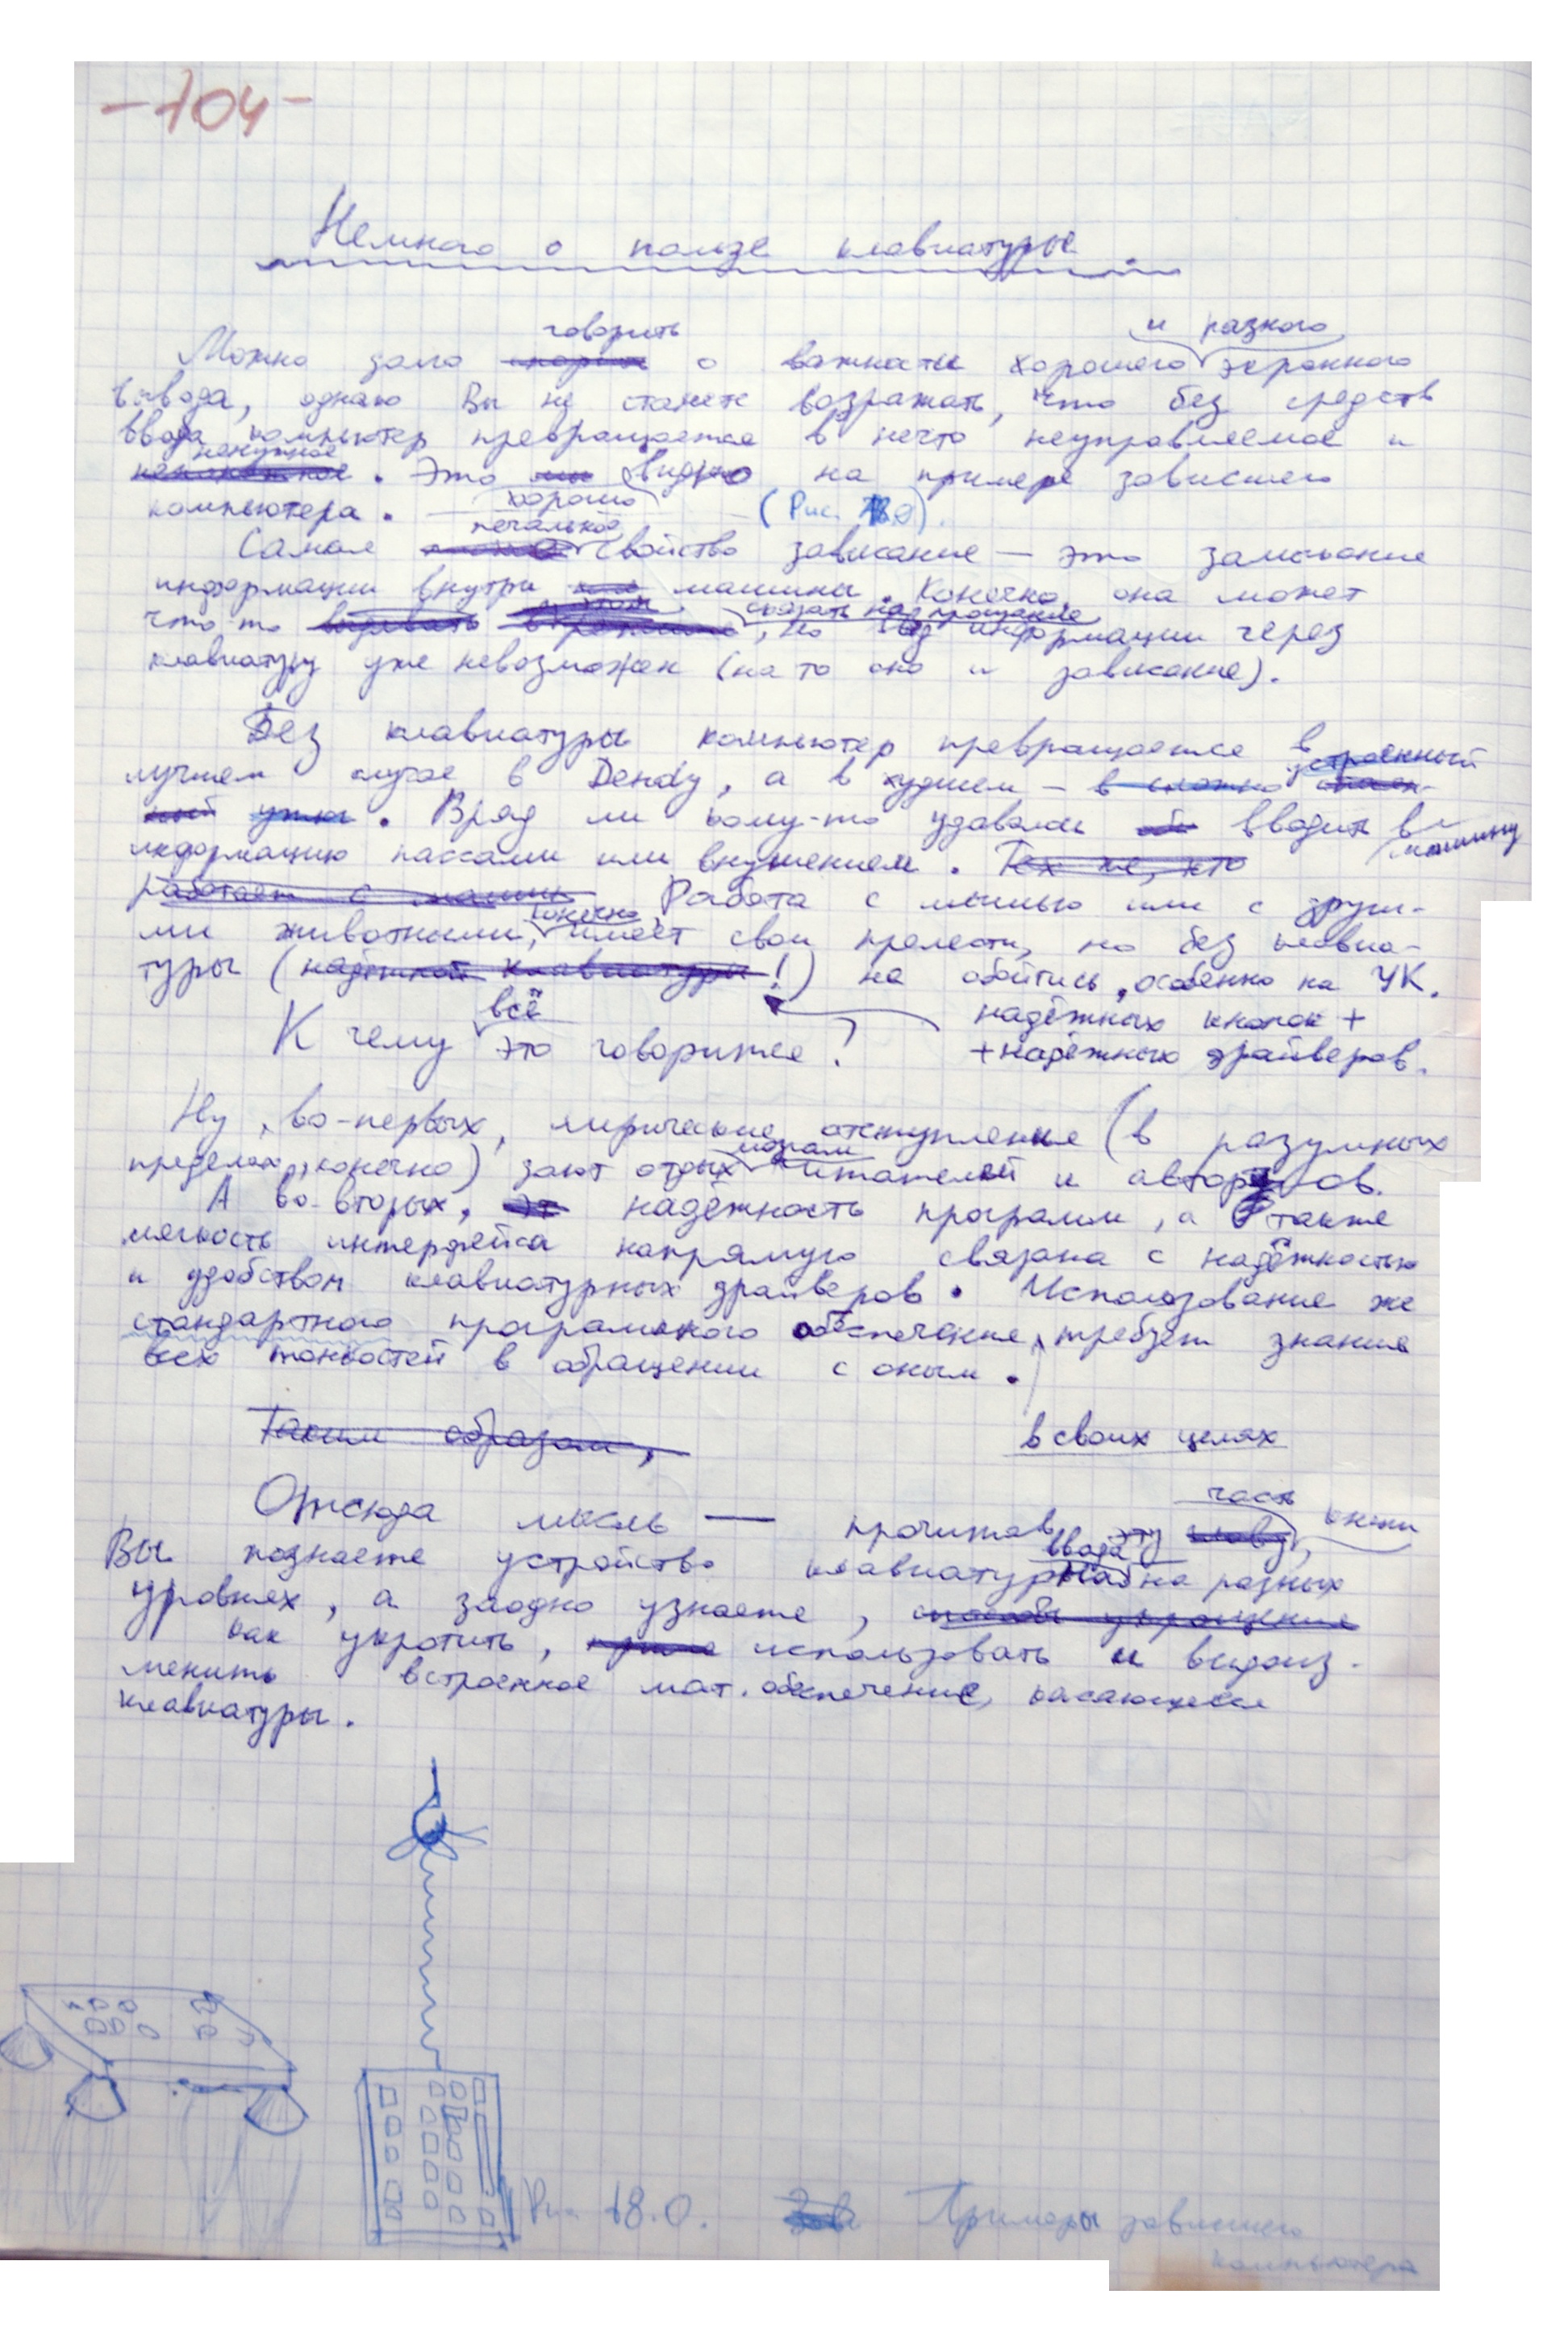 -104-
Немного о пользе клавиатуры.
говорить и разного
Можно долго о важности хорошего экранного
вывода, однако Вы не станете возражать, что без средств
ввода компьютер превращается в нечто неуправляемое и
ненужное
. Это видно на примере зависшего
хорошо
компьютера. (Рис. 18.0).
печальное
Самое свойство зависание — это замыкание
информации внутри машины. Конечно, она может
сказать на прощание
что-то , но ввод информации через
клавиатуру уже невозможен (на то оно и зависание).
Без клавиатуры компьютер превращается в
лучшем случае в Dendy, а в худшем – в
утюг. Вряд ли кому-то удавалось вводить в
машину
информацию пассами или внушением. Тех же, кто
работает с Работа с мышью или с други-
конечно,
ми животными, имеет свои прелести, но без клавиа-
туры (надёжной клавиатуры!) не обойтись, особенно на УК.
всё надёжных кнопок +
К чему это говорится? +надёжных драйверов.
Ну, во-первых, лирические отступления (в разумных
мозгам
пределах, конечно) дают отдых читателей и авторов.
А во-вторых, надёжность программ, а также
мягкость интерфейса напрямую связана с надёжностью
и удобством клавиатурных драйверов. Использование же
стандартного программного обеспечение, требует знания
всех тонкостей в обращении с оным.
Таким образом,
в своих целях
часть книги
Отсюда мысль — прочитав эту главу,
ввода
Вы познаете устройство клавиатурного на разных
уровнях, а заодно узнаете, способы укрощения
как укротить, использовать и видоиз-
менить встроенное мат. обеспечение, касающееся
клавиатуры.
Рис. 18.0. Примеры зависшего
компьютера